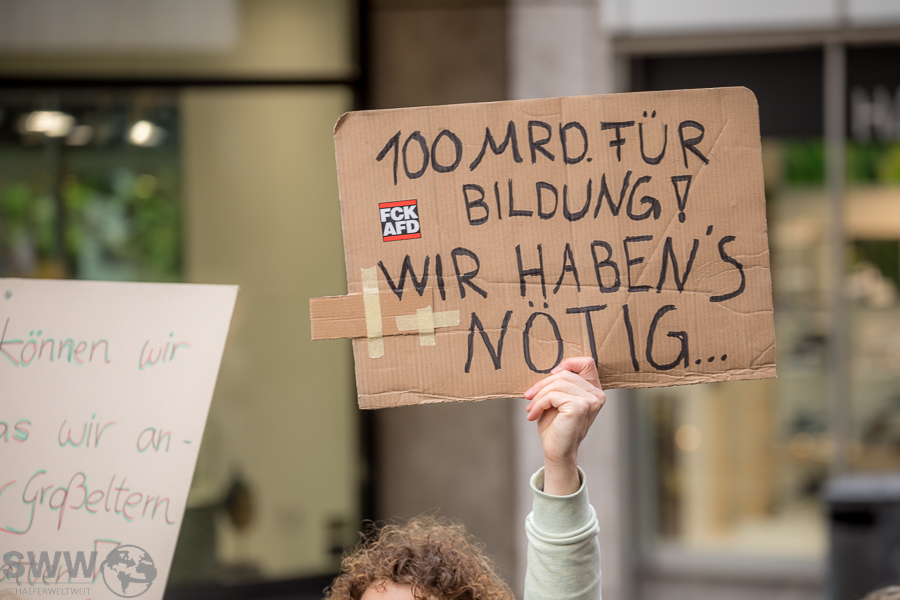 100 MRD. FÜR
BILDUNG!
WIR HABEN'S
NÖTIG...
FCK
AFD
können wir
as wir an-
Großeltern
SWW
SCHAEFERWELTWEIT
HA